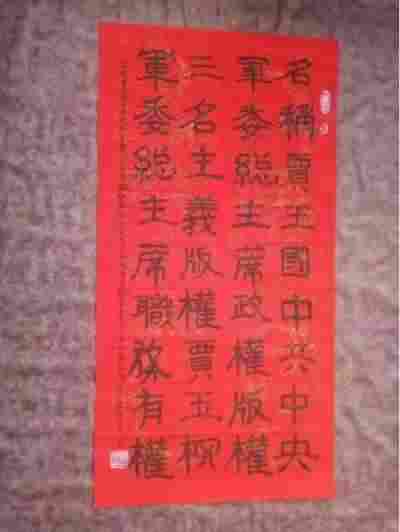 名稱賈玉國中共中央
軍委總主席政權版權
三名主義版權賈玉
軍委總主席職務有權